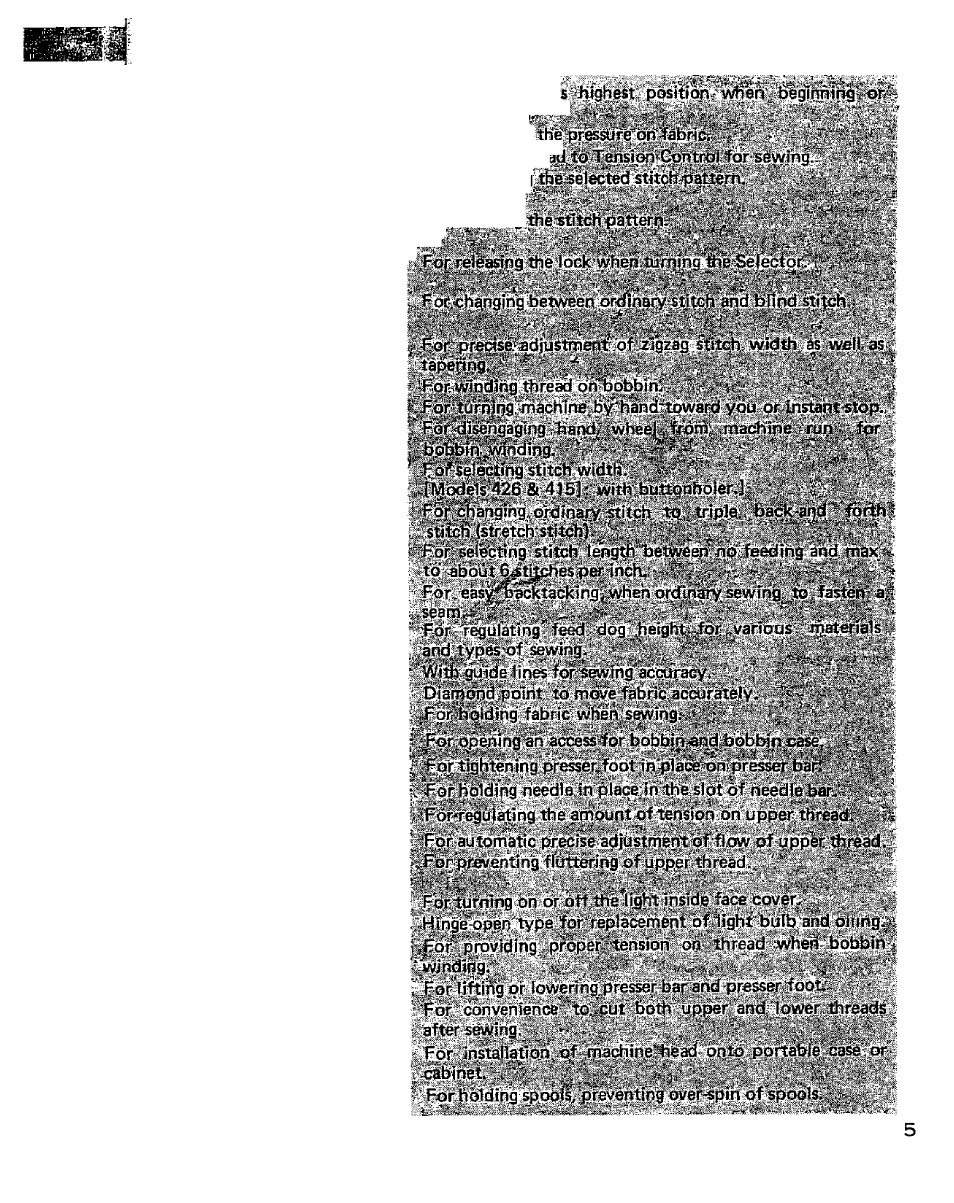 s highest position when beginning or
the pressure on fabric.
ad to Tension Control for sewing.
the selected stitch pattern.
the stitch pattern.
For releasing the lock when turning the Selector.
For changing between ordinary stitch and blind stitch.
For precise adjustment of zigzag stitch width as well as
tapering.
For winding thread on bobbin.
For turning machine by hand toward you or instant stop.
For disengaging hand wheel from machine run for
bobbin winding.
For selecting stitch width.
[Models 426 & 415] with buttonholer.]
For changing ordinary stitch to triple back and forth
stitch (stretch stitch)
For selecting stitch length between no feeding and max
to about 6 stitches per inch.
For easy backtacking when ordinary sewing to fasten a
seam.
For regulating feed dog height for various materials
and types of sewing.
With guide lines for sewing accuracy.
Diamond point to move fabric accurately.
For holding fabric when sewing.
For opening an access for bobbin and bobbin case.
For tightening presser foot in place on presser bar.
For holding needle in place in the slot of needle bar.
For regulating the amount of tension on upper thread.
For automatic precise adjustment of flow of upper thread.
For preventing fluttering of upper thread.
For turning on or off the light inside face cover.
Hinge-open type for replacement of light bulb and oiling.
For providing proper tension on thread when bobbin
winding.
For lifting or lowering presser bar and presser foot.
For convenience to cut both upper and lower threads
after sewing.
For installation of machine head onto portable case or
cabinet.
For holding spools, preventing over-spin of spools.
5